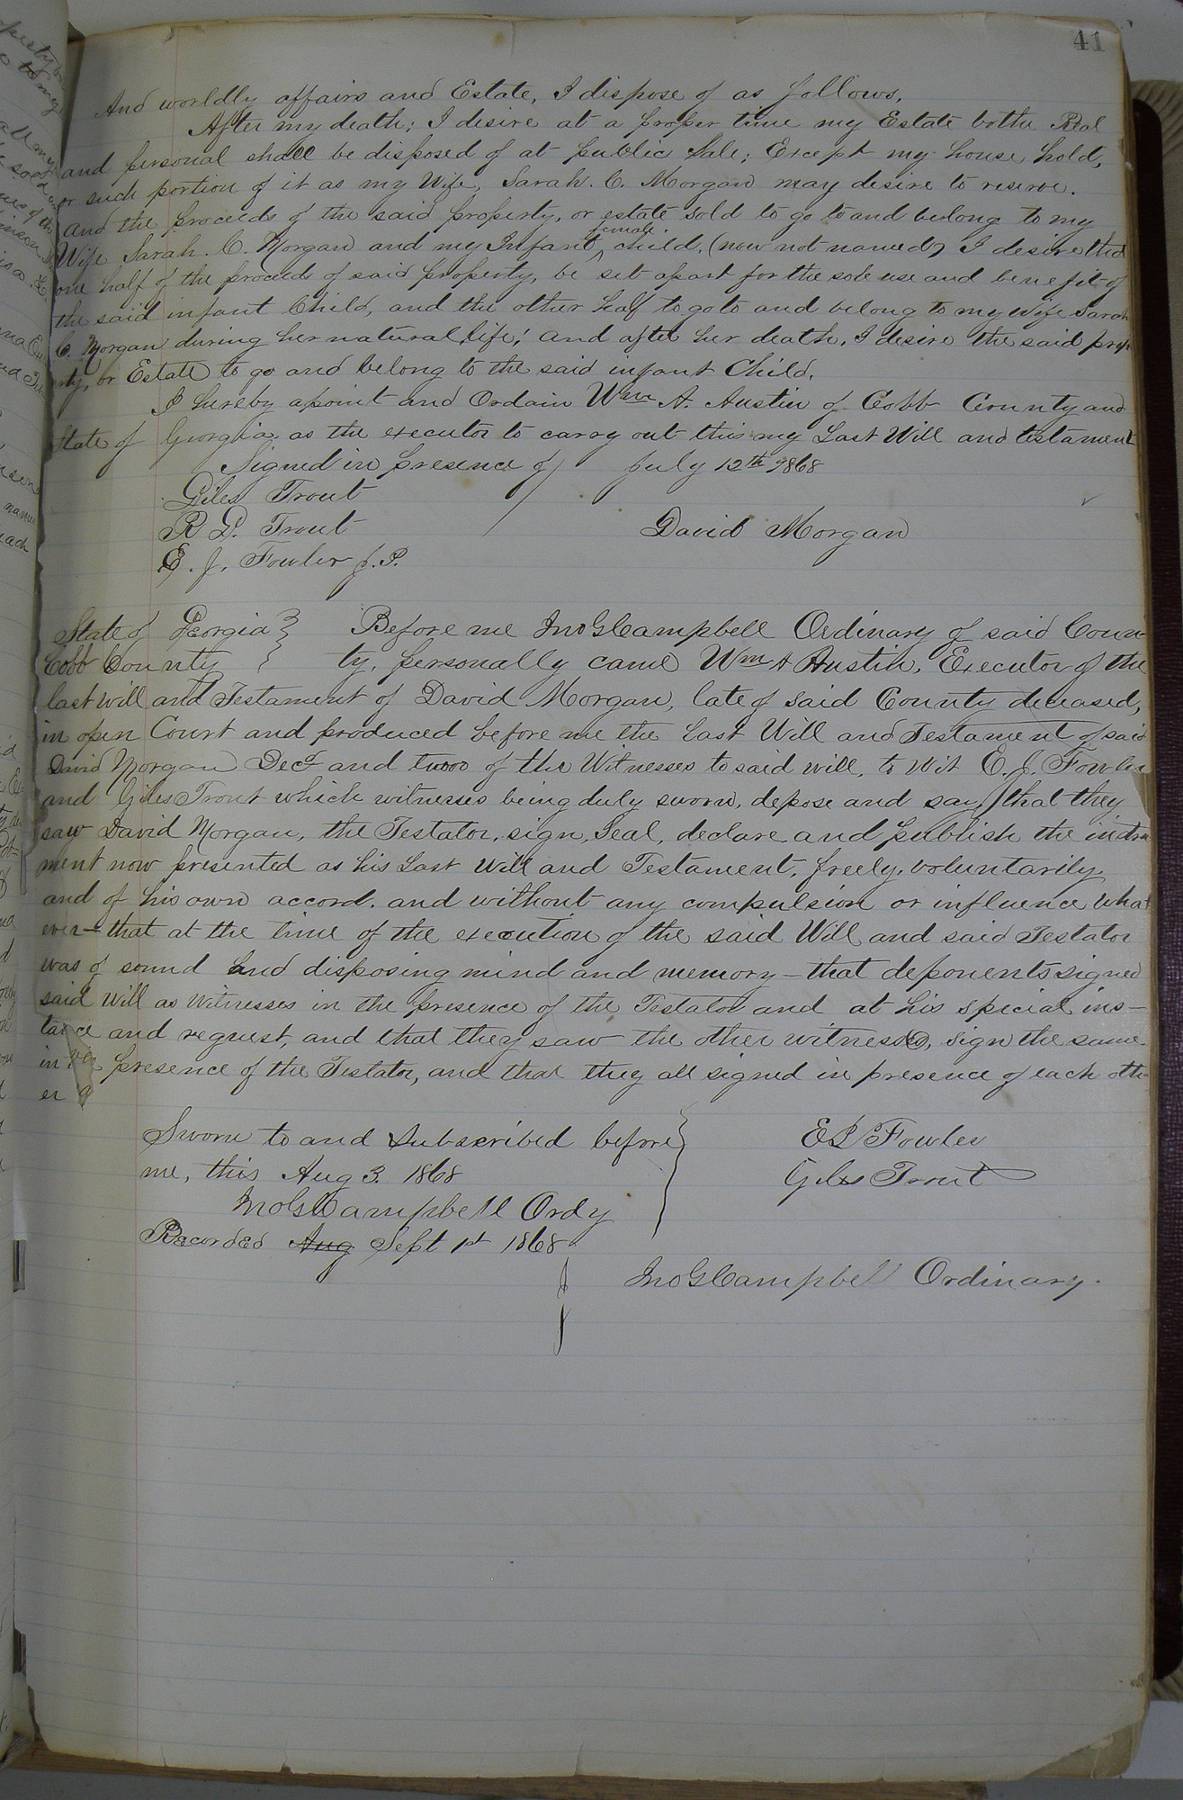 41
And worldly affairs and Estate, I dispose of as follows,
After my death; I desire at a proper time my Estate bothe Real
and personal shall be disposed of at public Sale; Except my house hold,
or such portion of it as my Wife, Sarah. C. Morgan may desire to reserve.
And the proceeds of the said property, or estate sold to go to and belong to my
Wife Sarah. C. Morgan and my Infant female child, (now not named) I desire that
one half of the proceeds of said property, be set apart for the sole use and benefit of
the said infant Child, and the other half to go to and belong to my wife Sarah
C. Morgan during her natural life; and after her death, I desire the said prop
erty, or Estate to go and belong to the said infant Child.
I hereby apoint and Ordain Wm A. Austin of Cobb County and
State of Georgia as the executor to carry out this my Last Will and testament
Signed in presence of July 12th 1868
Giles Trout
R P. Trout David Morgan
E. J. Fowler J. P.
State of Georgia } Before me Jno G Campbell Ordinary of said Coun-
Cobb County } ty, personally came Wm A Austin, Executor of the
last will and Testament of David Morgan, late of said County deceased,
in open Court and produced before me the Last Will and Testament of said
David Morgan Decd and two of the Witnesses to said will, to Wit E. J. Fowler
and Giles Trout which witnesses being duly sworn, depose and say, that they
saw David Morgan, the Testator, sign, Seal, declare and publish the instru
ment now presented as his Last Will and Testament, freely, voluntarily,
and of his own accord, and without any compulsion or influence what
ever- that at the time of the execution of the said Will and said Testator
was of sound and disposing mind and memory - that deponents signed
said Will as Witnesses in the presence of the Testator and at his special ins-
tance and request, and that they saw the other witnesses, sign the same
in the presence of the Testator, and that they all signed in presence of each oth
er
Sworn to and Subscribed before } E J Fowler
me, this Aug 3. 1868 Giles Trout
Jno G Campbell Ordy
Recorded Aug Sept 1st 1868
Jno G Campbell Ordinary.